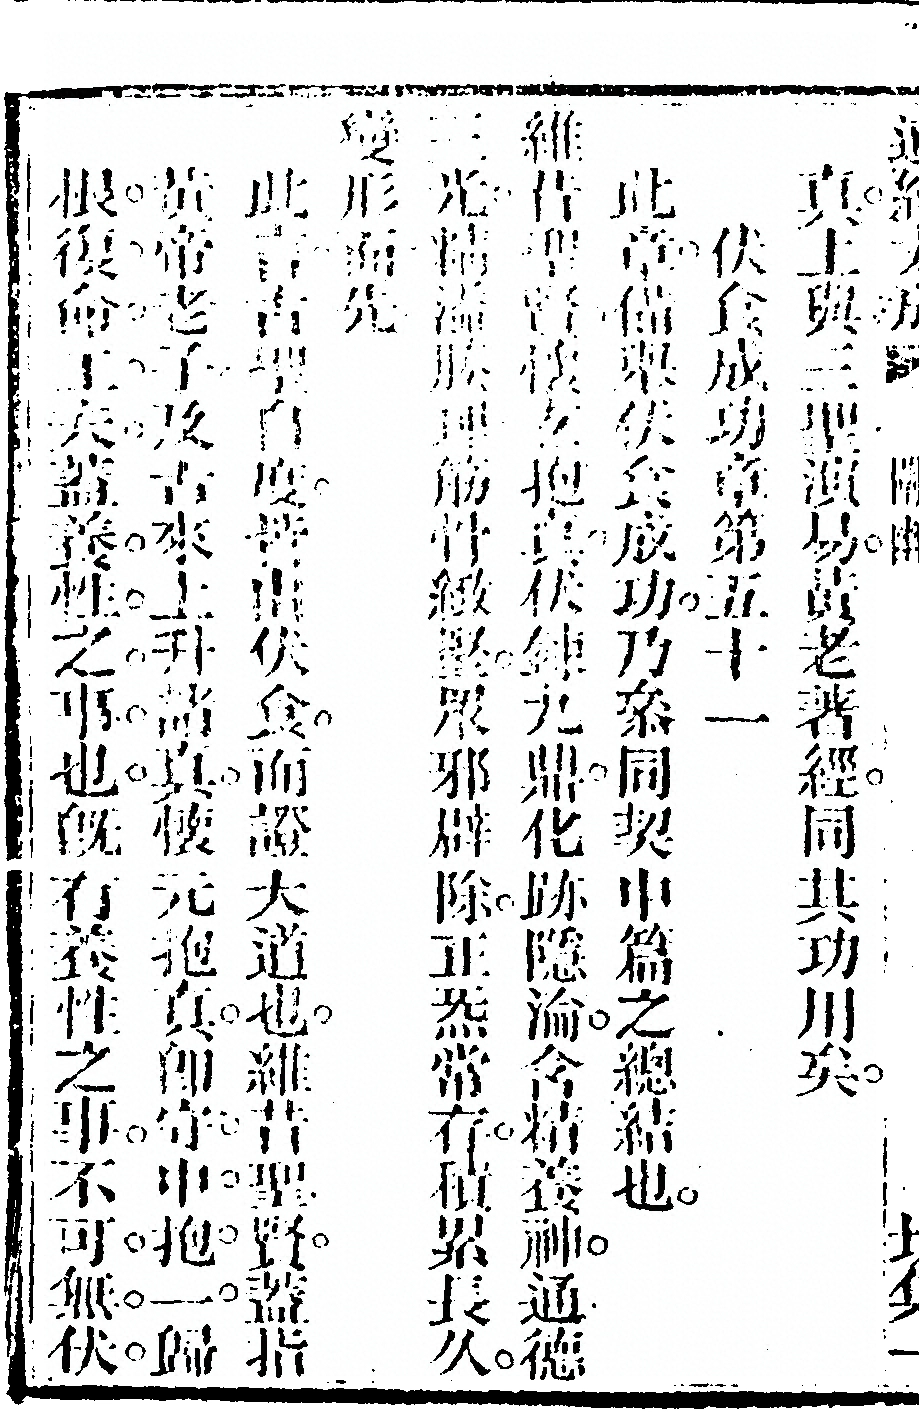 真士與三聖演易黃老著經同其功用矣
伏食成功章第五十一
此章備舉伏食成功乃叅同契中篇之總結也
維昔聖賢懷玄抱眞伏鍊九鼎化跡隱淪含精養神通德
三光精溢腠理筋骨緻堅眾邪辟除正炁常存積累長久
變形而仙
此言古聖自度皆出伏食而證大道也維昔聖賢蓋指
黃帝老子及古來上升諸真懷元抱真卽守中抱一歸
根復命工夫蓋養性之事也旣有養性之事不可無伏